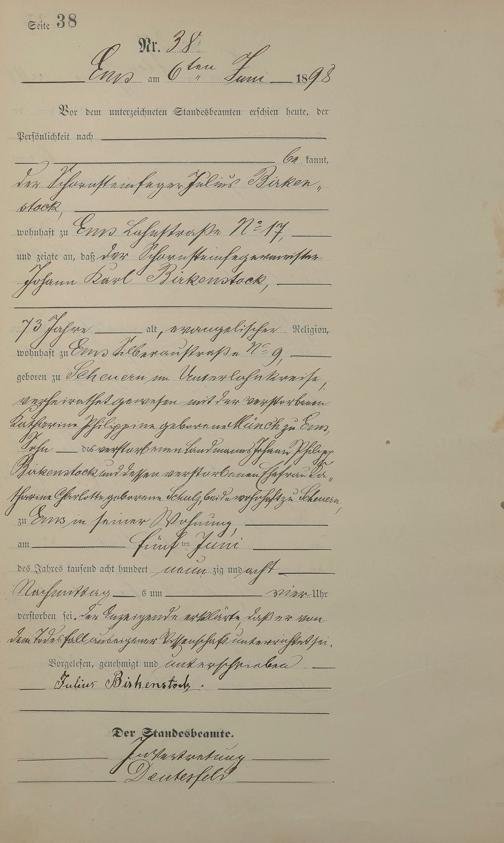 Seite 38
Nr. 38.
Ems am 6ten Juni 1898
Vor dem unterzeichneten Standesbeamten erschien heute, der
Persönlichkeit nach
bekannt,
der Schornsteinfeger Julius Birken-
stock,
wohnhaft zu Ems Lahnstraße No 17,
und zeigte an, daß der Schornsteinfegermeister
Johann Karl Birkenstock,
73 Jahre alt, evangelischer Religion,
wohnhaft zu Ems Silberaustraße No 9,
geboren zu Scheuern im Unterlahnkreise,
verheirathet gewesen mit der verstorbenen
Katharine Philippine geborene Münch zu Ems,
Sohn des verstorbenen Landmanns Johann Philipp
Birkenstock und dessen verstorbenen Ehefrau Ka-
tharine Charlotte geborene Schulz beide wohnhaft zu Scheuern,
zu Ems in seiner Wohnung,
am fünften Juni
des Jahres tausend acht hundert neunzig und acht
Nachmittags um vier Uhr
verstorben sei. Der Anzeigende erklärte, daß er von
dem Todesfall aus eigener Wissenschaft unterrichtet sei.
Vorgelesen, genehmigt und unterschrieben
Julius Birkenstock.
Der Standesbeamte.
In Vertretung